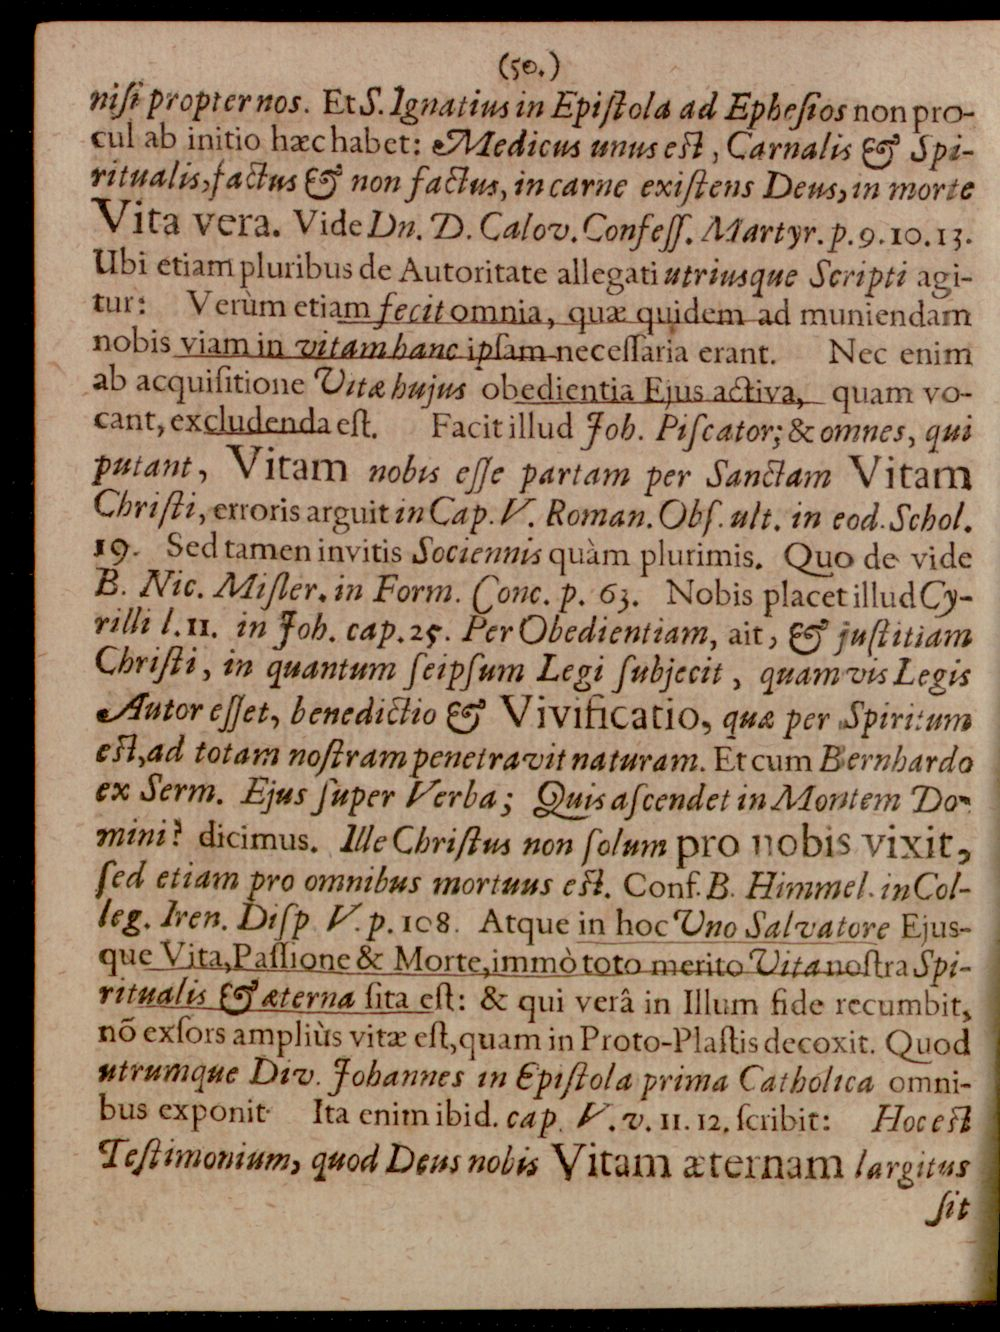 (50.)
niſi propter nos. Et S. Ignatius in Epiſtola ad Epheſios non pro-
cul ab initio hæc habet: Medicus unus eſt, Carnalis & Spi-
ritualis, factus & non factus, in carne exiſtens Deus, in morte
Vita vera. Vide Dn. D. Calov. Confeſſ. Martyr. p. 9. 10. 13.
Ubi etiam pluribus de Autoritate allegati utriusque Scripti agi-
tur: Verùm etiam fecit omnia, quæ quidem ad muniendam
nobis viam in vitam hanc ipſam neceſſaria erant. Nec enim
ab acquiſitione Vitæ hujus obedientia Ejus activa, quam vo-
cant, excludenda eſt. Facit illud Joh. Piſcator; & omnes, qui
putant, Vitam nobis eſſe partam per Sanctam Vitam
Chriſti, erroris arguit in Cap. V. Roman. Obſ. ult. in eod. Schol.
19. Sed tamen invitis Sociennis quàm plurimis. Quo de vide
B. Nic. Miſler. in Form. Conc. p. 63. Nobis placet illud Cy-
rilli l. 11. in Joh. cap. 25. Per Obedientiam, ait, & juſtitiam
Chriſti, in quantum ſeipſum Legi ſubjecit, quamvis Legis
Autor eſſet, benedictio & Vivificatio, quæ per Spiritum
eſt, ad totam noſtram penetravit naturam. Et cum Bernhardo
ex Serm. Ejus ſuper Verba; Quis aſcendet in Montem Do-
mini? dicimus. Ille Chriſtus non ſolum pro nobis vixit,
ſed etiam pro omnibus mortuus eſt. Conf. B. Himmel. in Col-
leg. Iren. Diſp V. p. 108. Atque in hoc Uno Salvatore Ejus-
que Vita, Paſſione & Morte, immò toto merito Vita noſtra Spi-
ritualis & æterna ſita eſt: & qui verâ in Illum fide recumbit,
nõ exſors ampliùs vitæ eſt, quam in Proto-Plaſtis decoxit. Quod
utrumque Div. Johannes in Epiſtola prima Catholica omni-
bus exponit Ita enim ibid. cap. V. v. 11. 12. ſcribit: Hoc eſt
Teſtimonium, quod Deus nobis Vitam æternam largitus
ſit